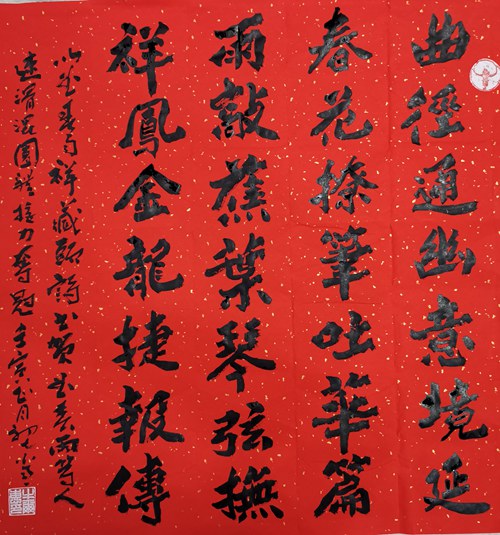 曲徑通幽意境延
春花撩筆吐華篇
雨敲蕉葉琴弦撫
祥鳳金龍捷報傳
以曲春雨祥藏頭詩書賀曲春雨等人
速滑混團體接力奪冠壬寅正月